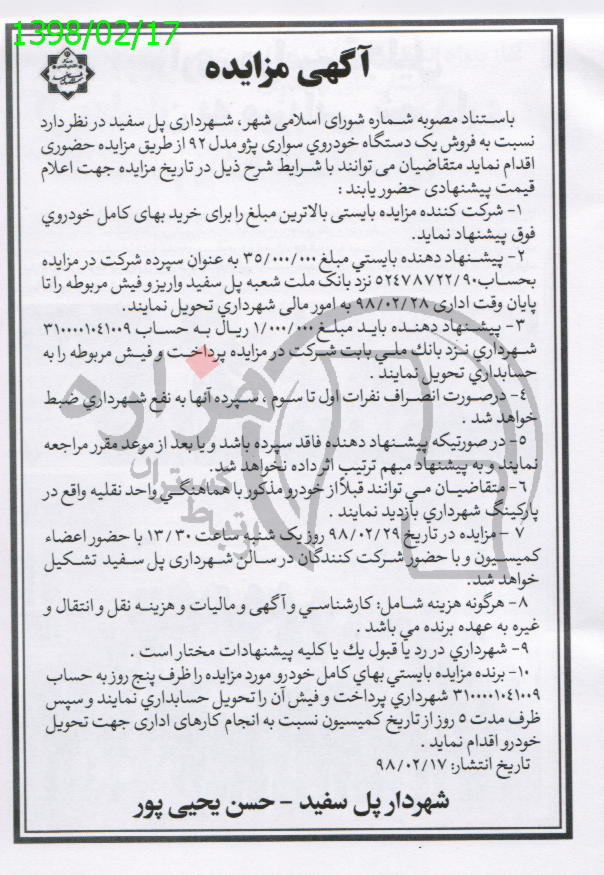 1398/02/17
آگهی مزایده
باستناد مصوبه شماره شورای اسلامی شهر، شهرداری پل سفید در نظر دارد
نسبت به فروش یک دستگاه خودروي سواری پژو مدل ۹۲ از طریق مزایده حضوری
اقدام نماید متقاضیان می توانند با شرایط شرح ذیل در تاریخ مزایده جهت اعلام
قیمت پیشنهادی حضور یابند :
۱- شرکت کننده مزایده بایستی بالاترین مبلغ را برای خرید بهای کامل خودروي
فوق پیشنهاد نماید.
۲- پیشنهاد دهنده بایستي مبلغ ۳۵/۰۰۰/۰۰۰ به عنوان سپرده شرکت در مزایده
بحساب ۵۲۴۷۸۷۲۲/۹۰ نزد بانک ملت شعبه پل سفید واریز و فیش مربوطه را تا
پایان وقت اداری ۹۸/۰۲/۲۸ به امور مالی شهرداري تحویل نمایند.
۳- پیشنهاد دهنده باید مبلغ ۱/۰۰۰/۰۰۰ ریال به حساب ۳۱۰۰۰۰۱۰۴۱۰۰۹
شهرداري نزد بانك ملي بابت شرکت در مزایده پرداخت و فیش مربوطه را به
حسابداري تحویل نمایند .
۴- درصورت انصراف نفرات اول تا سوم ، سپرده آنها به نفع شهرداري ضبط
خواهد شد .
۵- در صورتیکه پیشنهاد دهنده فاقد سپرده باشد و یا بعد از موعد مقرر مراجعه
نمایند و به پیشنهاد مبهم ترتیب اثر داده نخواهد شد.
۶- متقاضیان می توانند قبلاً از خودرو مذکور با هماهنگي واحد نقلیه واقع در
پارکینگ شهرداري بازدید نمایند .
۷ - مزایده در تاریخ ۹۸/۰۲/۲۹ روز یک شنبه ساعت ۱۳/۳۰ با حضور اعضاء
کمیسیون و با حضور شرکت کنندگان در سالن شهرداری پل سفید تشکیل
خواهد شد.
۸- هرگونه هزینه شامل: کارشناسي و آگهی و مالیات و هزینه نقل و انتقال و
غیره به عهده برنده مي باشد .
۹- شهرداري در رد یا قبول يك یا کلیه پیشنهادات مختار است .
۱۰- برنده مزایده بایستي بهاي کامل خودرو مورد مزایده را ظرف پنج روز به حساب
۳۱۰۰۰۰۱۰۴۱۰۰۹ شهرداري پرداخت و فیش آن را تحویل حسابداري نمایند و سپس
ظرف مدت ۵ روز از تاریخ کمیسیون نسبت به انجام کارهای اداری جهت تحویل
خودرو اقدام نماید .
تاریخ انتشار: ۹۸/۰۲/۱۷
شهردار پل سفید - حسن یحیی پور
هزاره
گسترال
ارتباط